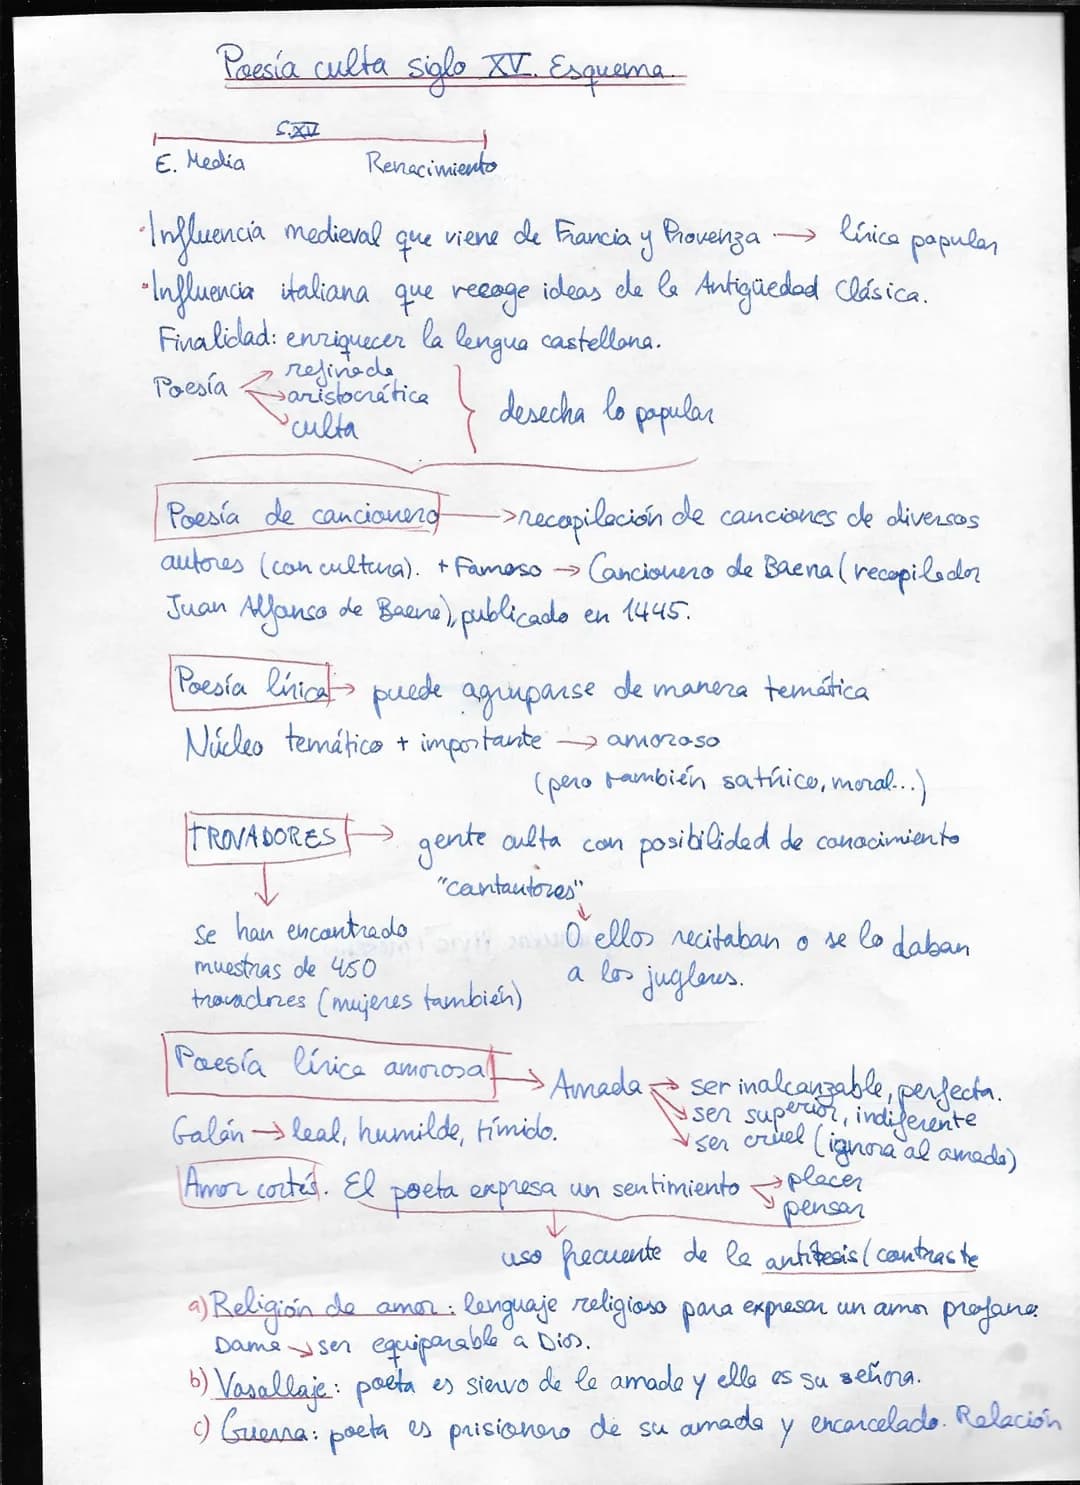 Poesía culta siglo XV. Esquema.
S.XV
E. Media Renacimiento
·Influencia medieval que viene de Francia y Provenza → lírica popular
·Influencia italiana que recoge ideas de la Antigüedad Clásica.
Finalidad: enriquecer la lengua castellana.
Poesía → refinada
→ aristocrática
→ culta
desecha lo popular
Poesía de cancionero → recopilación de canciones de diversos
autores (con cultura). + Famoso → Cancionero de Baena (recopilador
Juan Alfonso de Baena), publicado en 1445.
Poesía lírica → puede agruparse de manera temática
Núcleo temático + importante → amoroso
(pero también satírico, moral...)
TROVADORES → gente culta con posibilidad de conocimiento
"cantautores"
se han encontrado
muestras de 450
trovadores (mujeres también)
O ellos recitaban o se lo daban
a los juglares.
Poesía lírica amorosa → Amada → ser inalcanzable, perfecta.
→ ser superior, indiferente
→ ser cruel (ignora al amado)
Galán → leal, humilde, tímido.
Amor cortés. El poeta expresa un sentimiento → placer
→ pensar
uso frecuente de la antítesis/contraste
a) Religión de amor: lenguaje religioso para expresar un amor profano.
Dama → ser equiparable a Dios.
b) Vasallaje: poeta es siervo de la amada y ella es su señora.
c) Guerra: poeta es prisionero de su amada y encarcelado. Relación